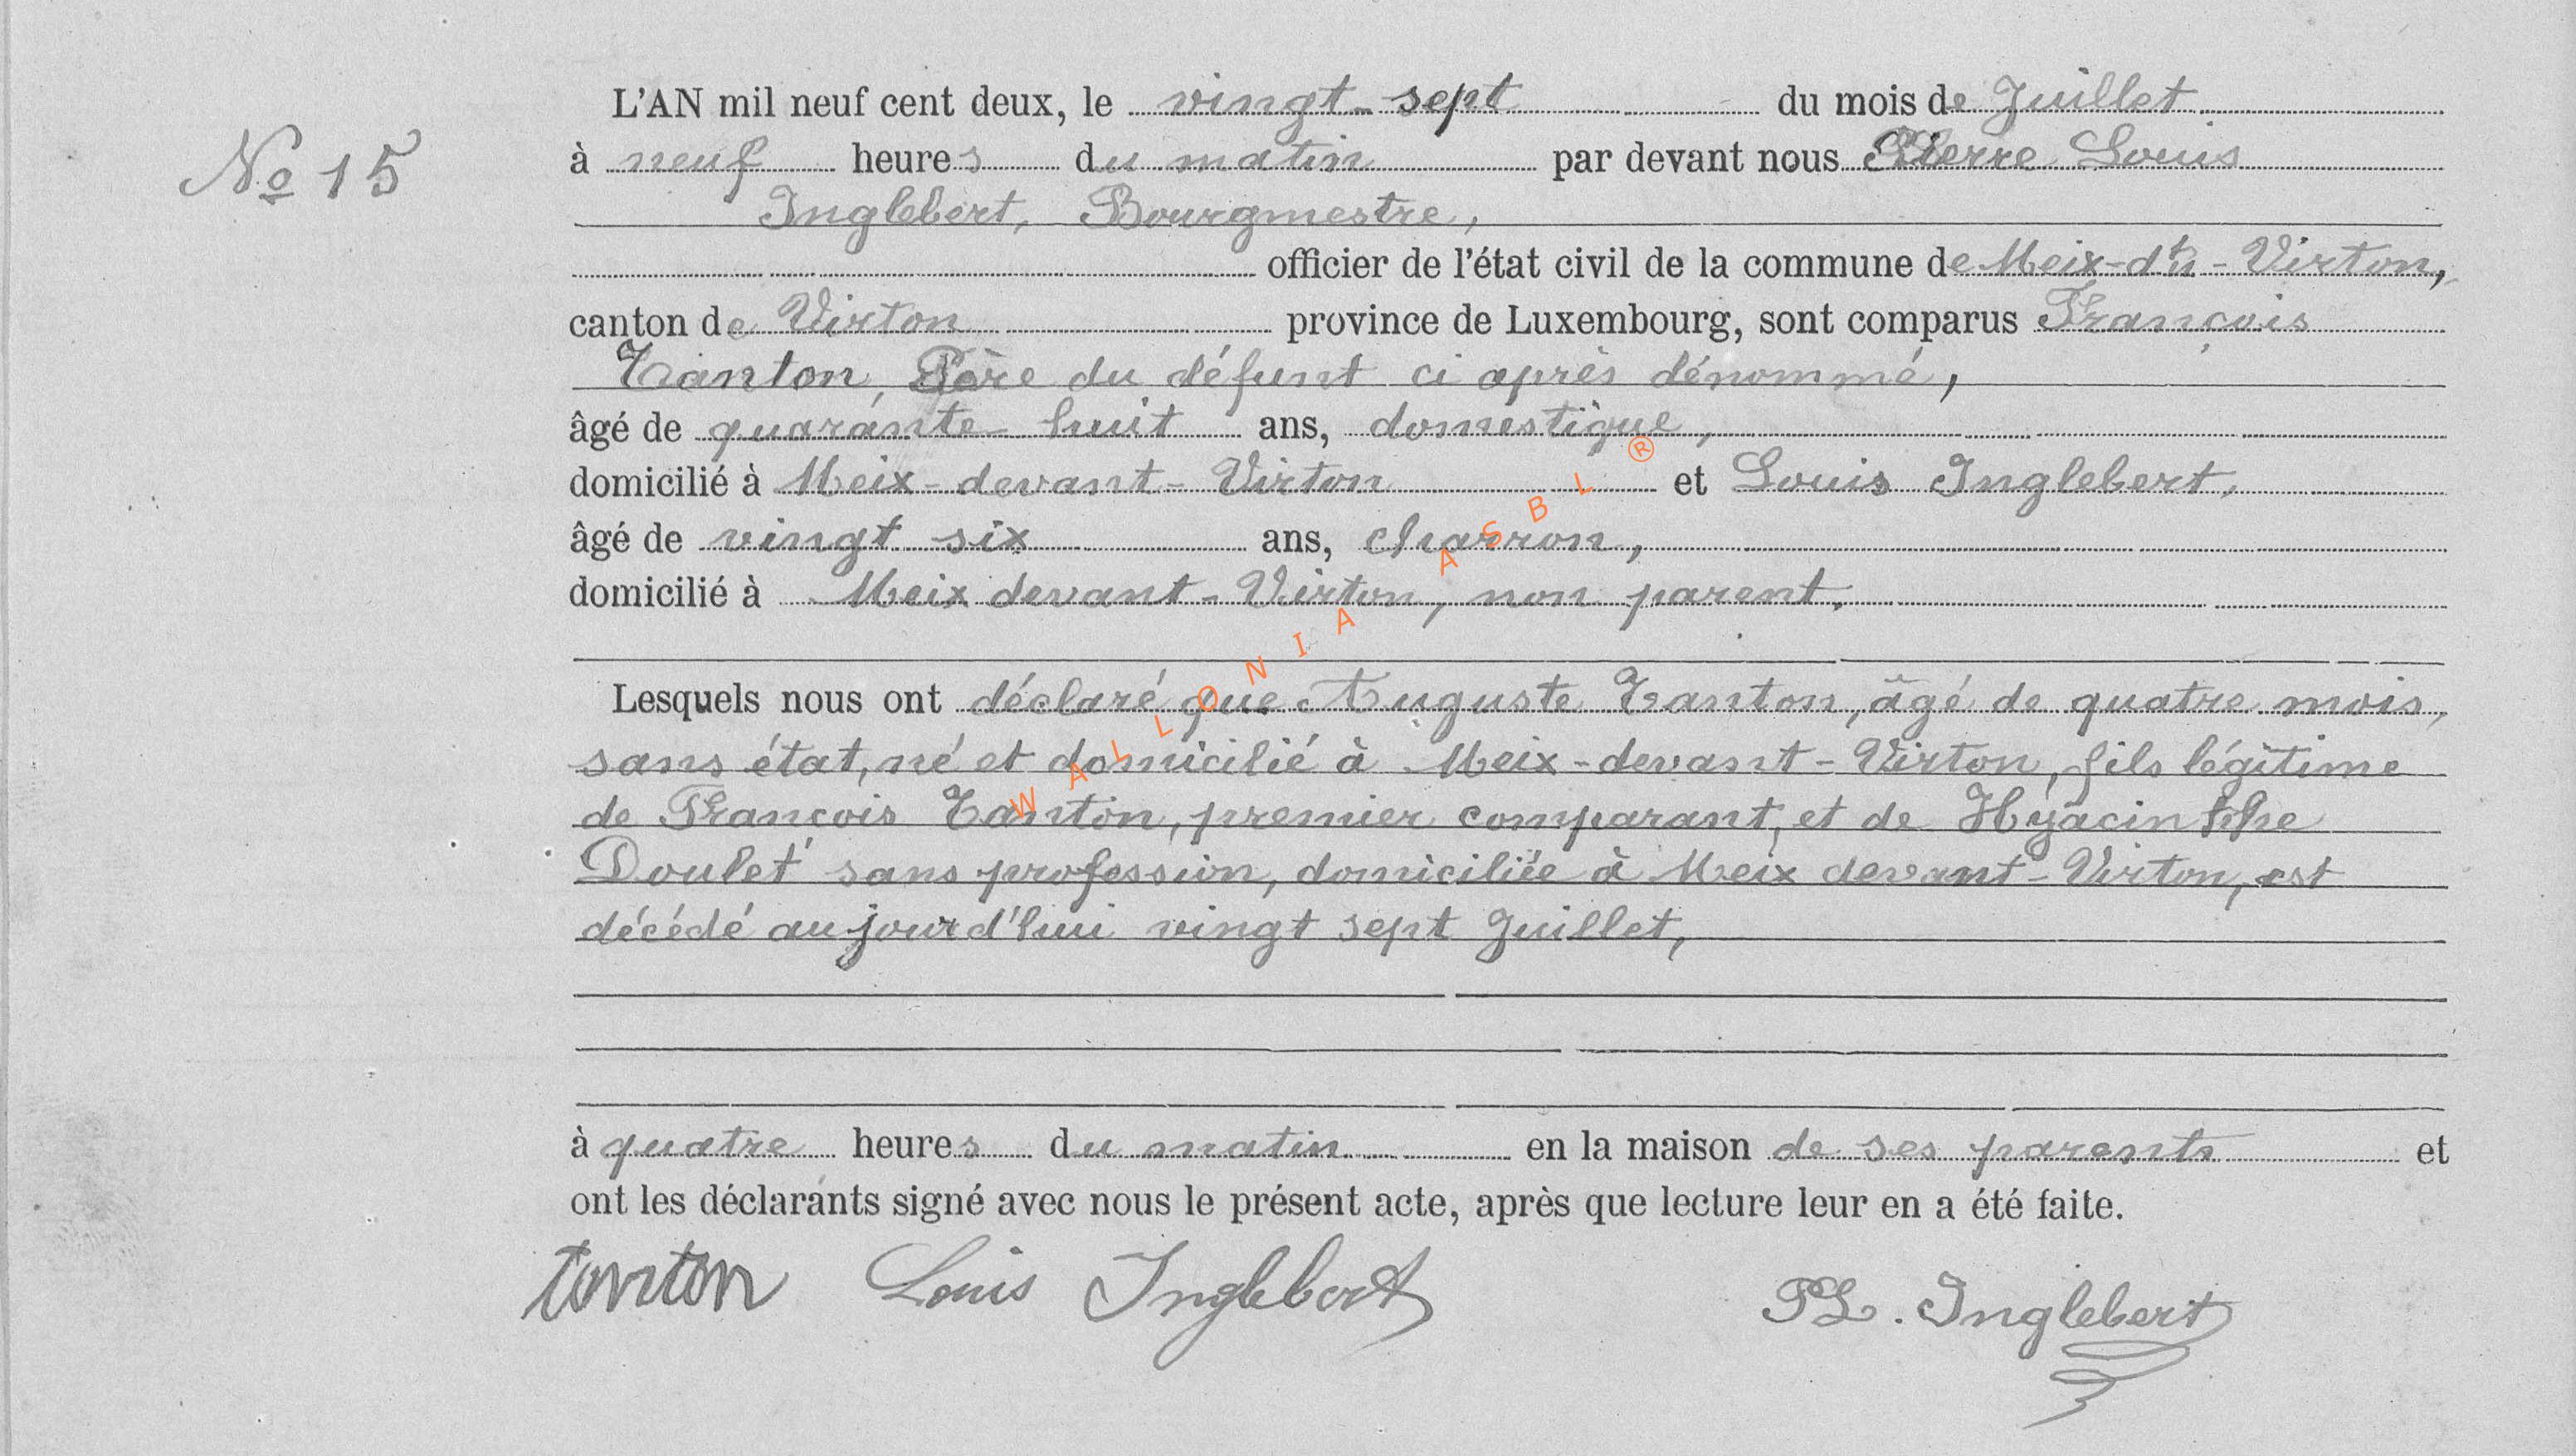 N° 15
L'AN mil neuf cent deux, le vingt-sept du mois de Juillet
à neuf heures du matin par devant nous Pierre Louis
Inglebert, Bourgmestre,
officier de l'état civil de la commune de Meix-dt-Virton,
canton de Virton province de Luxembourg, sont comparus François
Tanton, Père du défunt ci après dénommé,
âgé de quarante-huit ans, domestique,
domicilié à Meix-devant-Virton et Louis Inglebert,
âgé de vingt six ans, charron,
domicilié à Meix devant-Virton, non parent.
Lesquels nous ont déclaré que Auguste Tanton, âgé de quatre mois,
sans état, né et domicilié à Meix-devant-Virton, fils légitime
de François Tanton, premier comparant, et de Hyacinthe
Doulet sans profession, domiciliée à Meix devant-Virton, est
décédé aujourd'hui vingt sept Juillet,
à quatre heures du matin en la maison de ses parents et
ont les déclarants signé avec nous le présent acte, après que lecture leur en a été faite.
tanton Louis Inglebert PL. Inglebert
WALLONIA ASBL ®